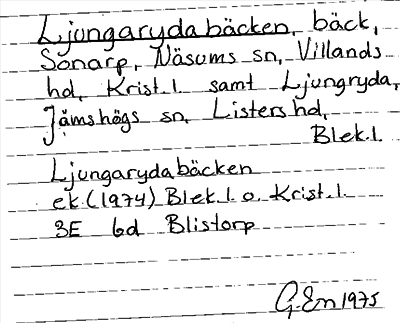 Ljungarydabäcken, bäck,
Sonarp, Näsums sn, Villands
hd, Krist.l. samt Ljungryda,
Jämshögs sn, Listers hd,
Blek.l.
Ljungarydabäcken
ek. (1974) Blek.l. o. Krist.l.
3E 6d Blistorp
G.En 1975